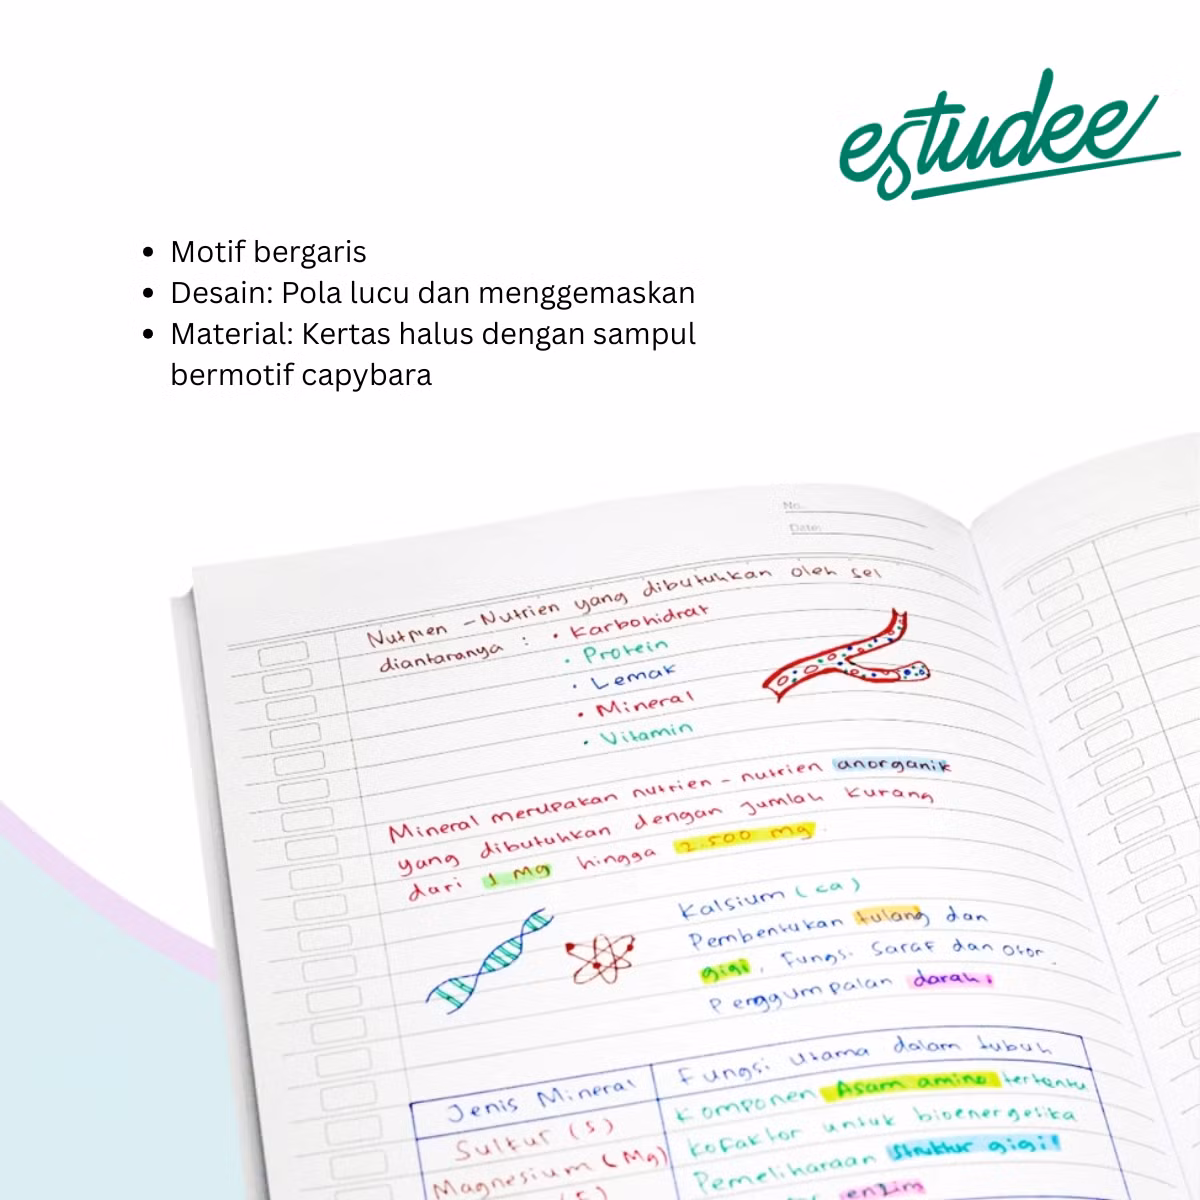 estudee
• Motif bergaris
• Desain: Pola lucu dan menggemaskan
• Material: Kertas halus dengan sampul
bermotif capybara
No.
Date:
Nutrien - Nutrien yang dibutuhkan oleh sel
diantaranya : • Karbohidrat
• Protein
• Lemak
• Mineral
• Vitamin
Mineral merupakan nutrien - nutrien anorganik
yang dibutuhkan dengan jumlah kurang
dari 1 Mg hingga 2.500 mg.
Kalsium (ca)
Pembentukan tulang dan
gigi, Fungsi Saraf dan otot.
Penggumpalan darah
Jenis Mineral
Fungsi Utama dalam tubuh
Sulfur (S)
Komponen Asam amino tertentu
Magnesium (Mg)
Kofaktor untuk bioenergetika
Pemeliharaan Struktur gigi
enzim